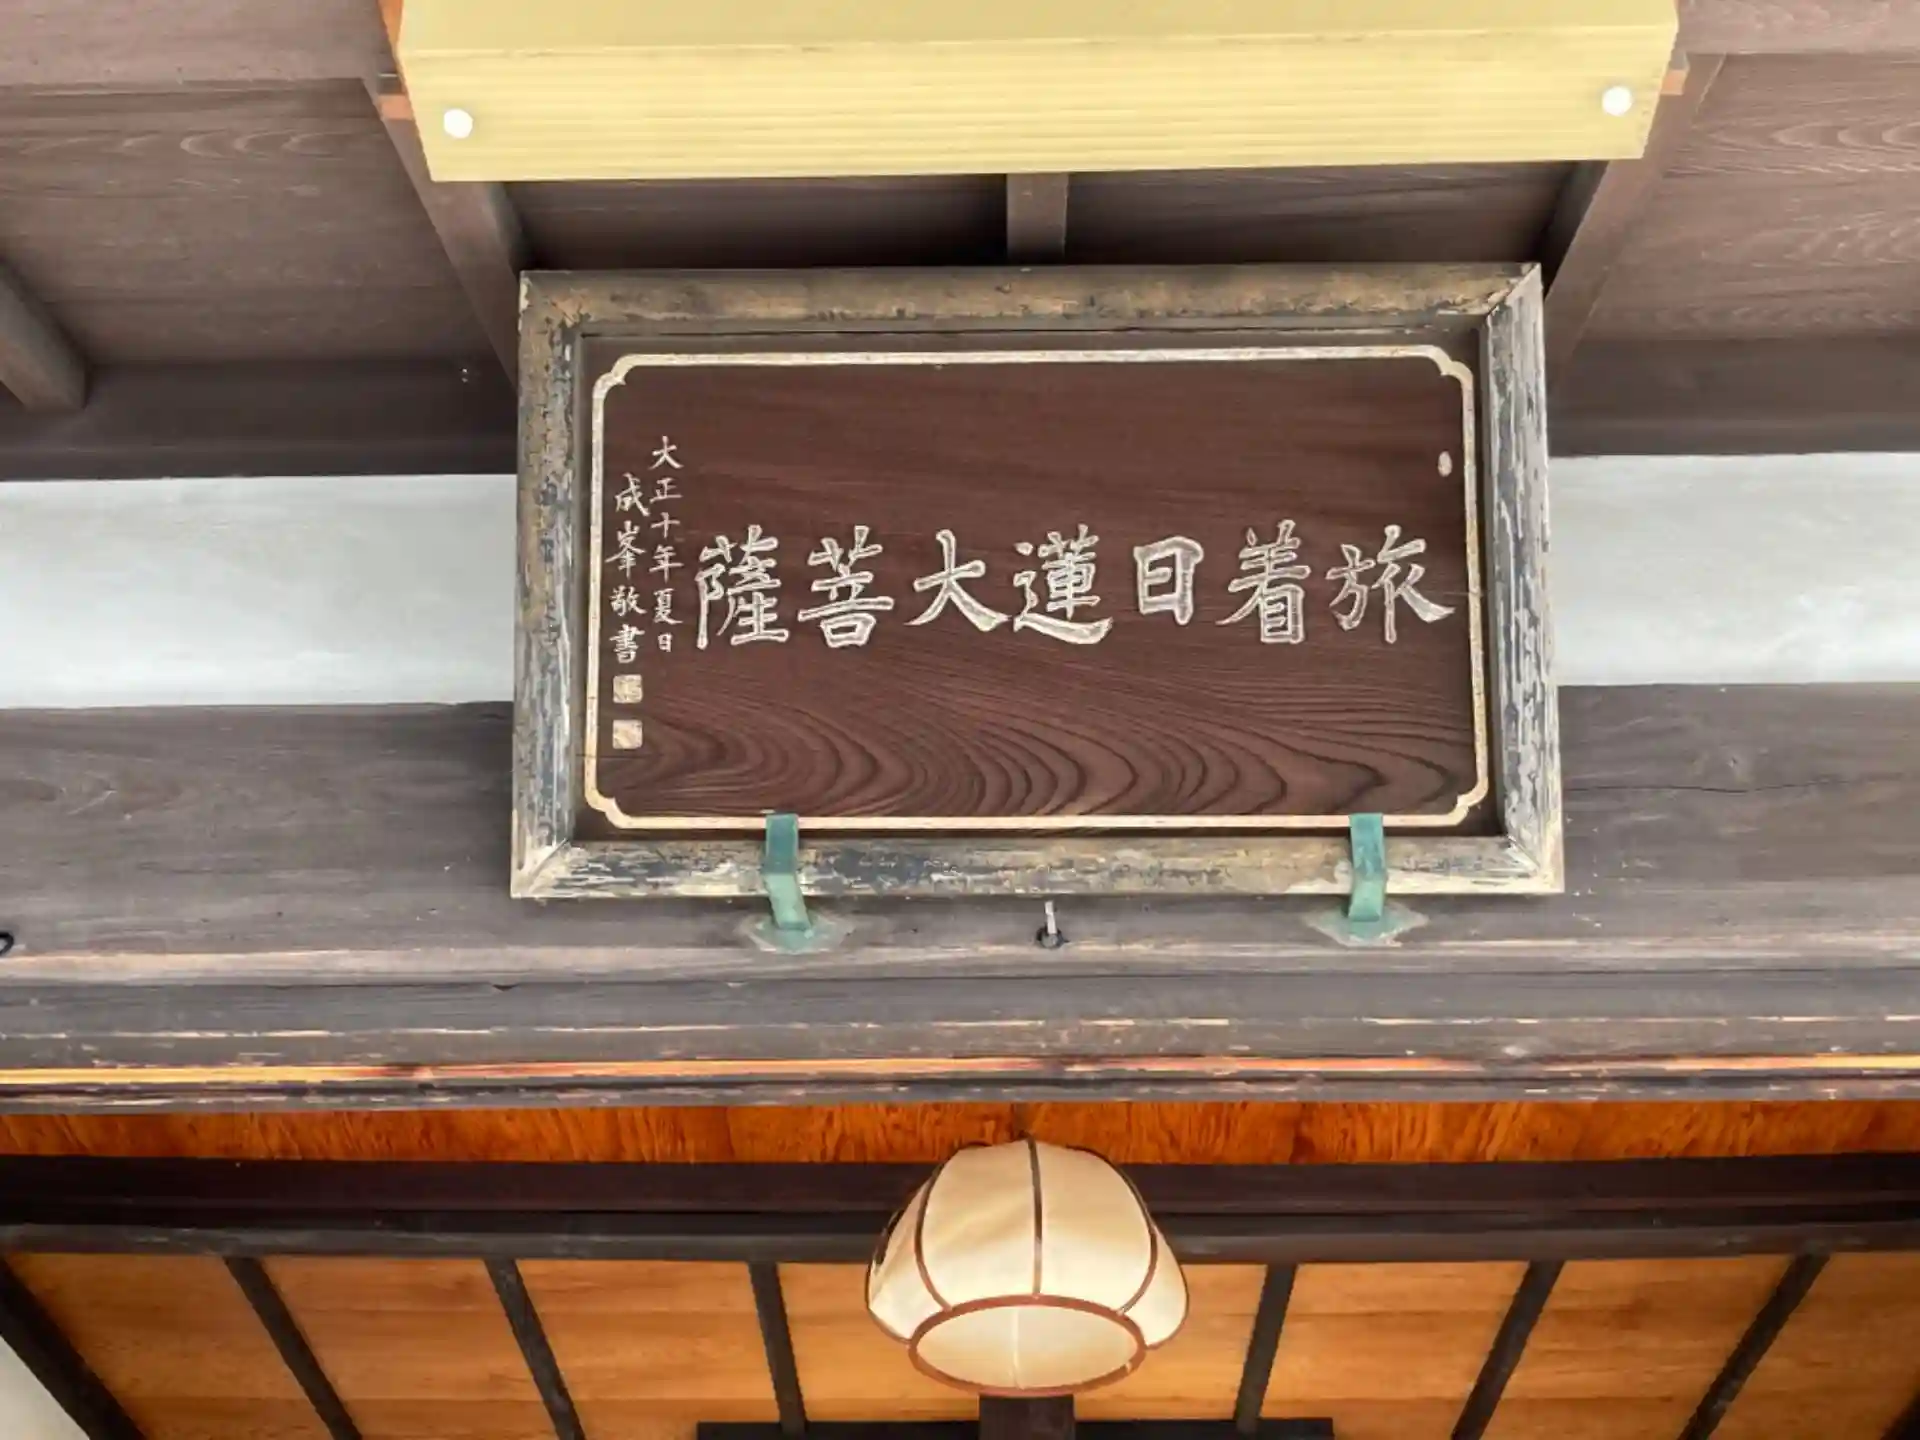 旅着日蓮大菩薩
大正十年夏日
成峯敬書